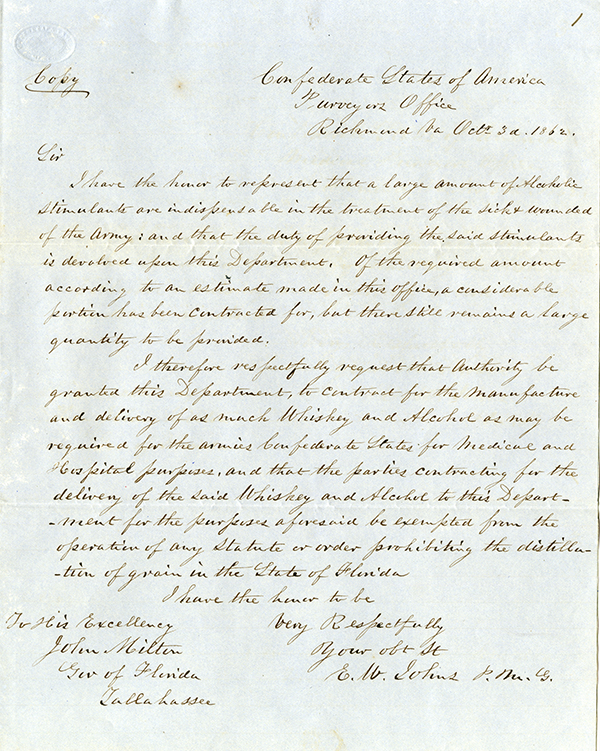 1
Copy
Confederate States of America
Purveyors Office
Richmond Va Octr 3d. 1862.
Sir
I have the honor to represent that a large amount of Alcoholic
Stimulants are indispensable in the treatment of the sick & wounded
of the Army: and that the duty of providing the said stimulants
is devolved upon this Department. Of the required amount
according to an estimate made in this office, a considerable
portion has been contracted for, but there still remains a large
quantity to be provided.
I therefore respectfully request that Authority be
granted this Department, to contract for the manufacture
and delivery of as much Whiskey and Alcohol as may be
required for the armies Confederate States for Medical and
Hospital purposes, and that the parties contracting for the
delivery of the said Whiskey and Alcohol to this Depart-
-ment for the purposes aforesaid be exempted from the
operation of any Statute or order prohibiting the distilla-
-tion of grain in the State of Florida
I have the honor to be
Very Respectfully
Your obt St
E. W. Johns P.M.G.
To His Excellency
John Milton
Gov of Florida
Tallahassee